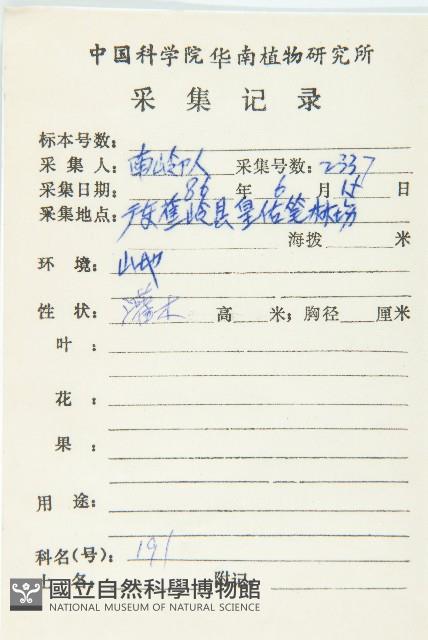 中国科学院华南植物研究所
采集记录
标本号数:
采集人: 南岭队 采集号数: 2337
采集日期: 86 年 6 月 14 日
采集地点: 广东蕉岭县皇佑笔林场
海拨 米
环境: 山地
性状: 灌木 高 米; 胸径 厘米
叶:
花:
果:
用途:
科名(号): 191
土名: 附记
國立自然科學博物館
NATIONAL MUSEUM OF NATURAL SCIENCE